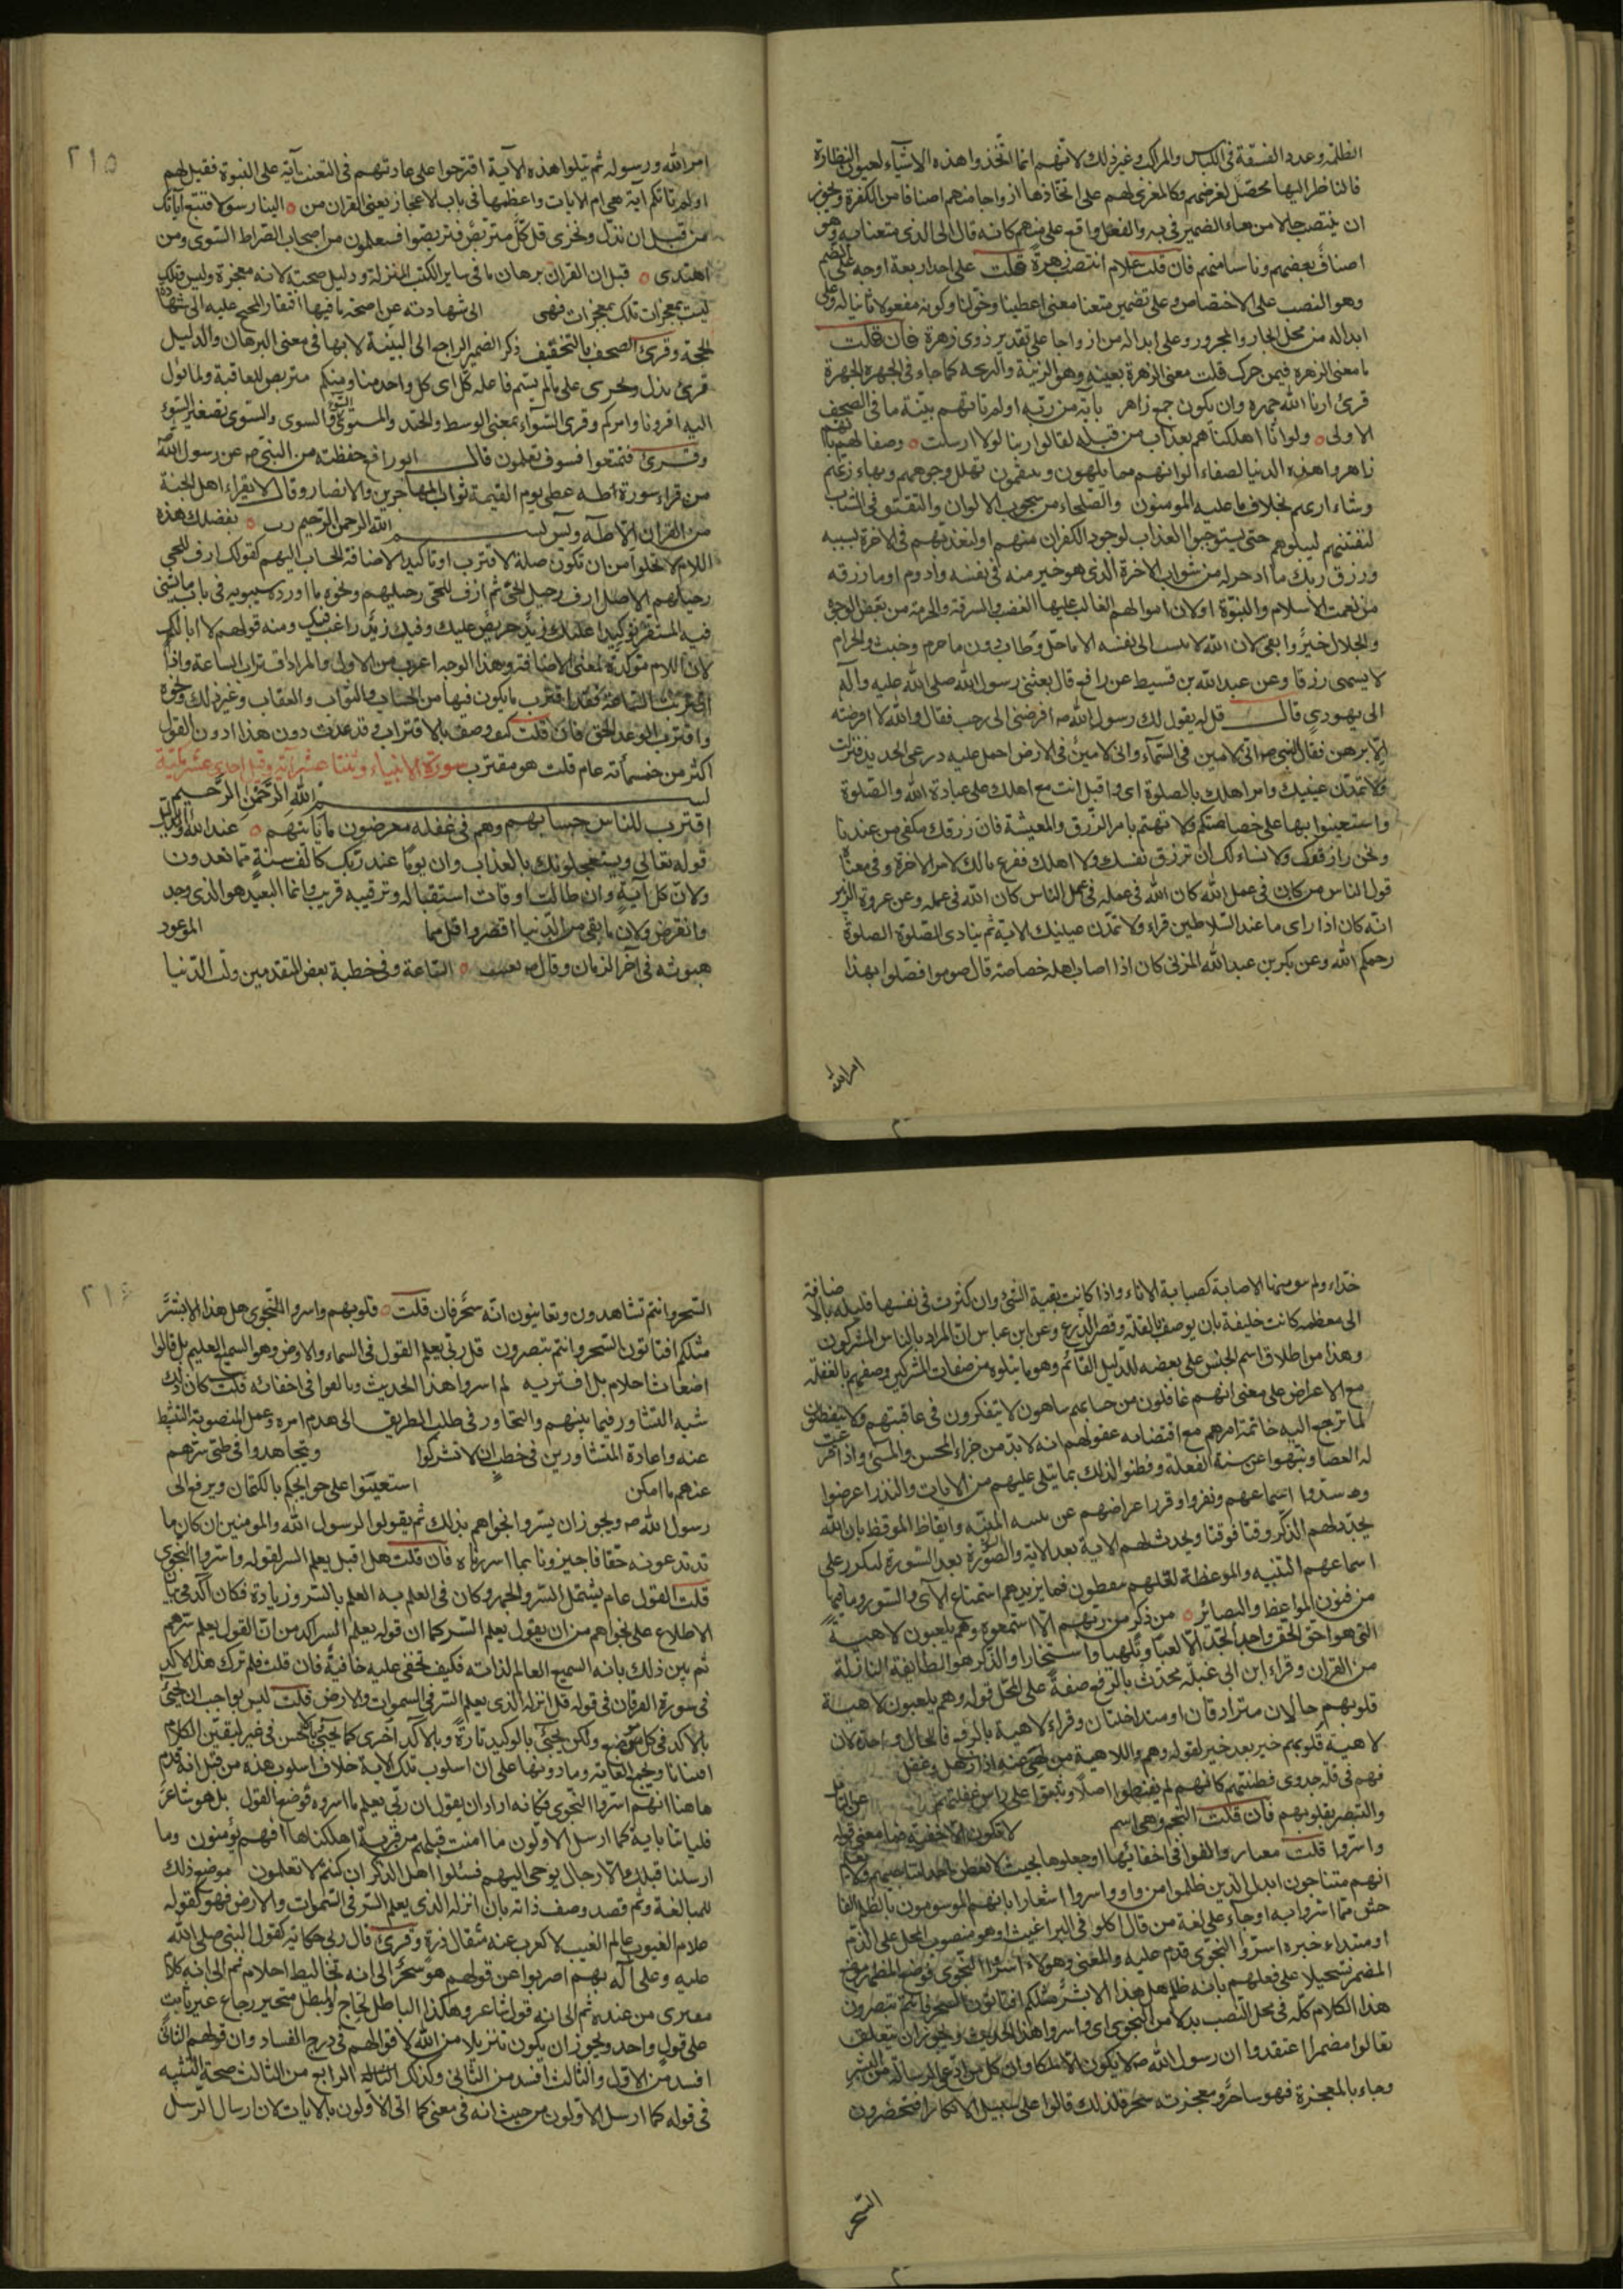 الظلمة وعدد الفسقة في اللباس والمراكب وغير ذلك لانهم انما اتخذوا هذه الاشياء لعيون النظارة
فالناظر اليها محصل لغرضهم وكالمغري لهم على اتخاذها ازواجا منهم اصنافا من الكفرة ويجوز
ان ينتصب حالا من هاء الضمير في به والفعل واقع على منهم كانه قال الى الذي متعنا به وهو
اصناف بعضهم وناسا منهم فان قلت علام انتصب زهرة قلت على احد اربعة اوجه على الذم
وهو النصب على الاختصاص وعلى تضمين متعنا معنى اعطينا وخولنا وكونه مفعولا ثانيا له وعلى
ابداله من محل الجار والمجرور وعلى ابداله من ازواجا على تقدير ذوي زهرة فان قلت
ما معنى الزهرة فيمن حرك قلت معنى الزهرة بعينه وهو الزينة والبهجة كما جاء في الجهرة الجهرة
قرئ ارنا الله جهرة وان يكون جمع زاهر باية من ربه اولم تاتهم بينة ما في الصحف
الاولى ولو انا اهلكناهم بعذاب من قبله لقالوا ربنا لولا ارسلت وصفا لهم بانهم
زاهروا هذه الدنيا لصفاء الوانهم مما يلهون ويتنعمون تهلل وجوههم وبهاء زيهم
وشارتهم بخلاف ما عليه المومنون والصلحاء من شحوب الالوان والتقشف في الثياب
لنفتنهم لنبلوهم حتى يستوجبوا العذاب لوجود الكفران منهم او لنعذبهم في الاخرة بسببه
ورزق ربك ما ادخر له من ثواب الاخرة الذي هو خير منه في نفسه وادوم او ما رزقه
من نعمة الاسلام والنبوة او لان اموالهم الغالب عليها الغصب والسرقة والحرمة من بعض الوجوه
والحلال خير وابقى لان الله لا ينسب الى نفسه الا ما حل وطاب دون ما حرم وخبث والحرام
لا يسمى رزقا وعن عبد الله بن قسيط عن رافع قال بعثني رسول الله صلى الله عليه وآله
الى يهودي قال قل له يقول لك رسول الله ص اقرضني الى رجب فقال والله لا اقرضته
الا برهن فقال النبي ص اني لامين في السماء واني لامين في الارض احمل عليه درعي الحديد فنزلت
ولا تمدن عينيك وامر اهلك بالصلوة اي واقبل انت مع اهلك على عبادة الله والصلوة
واستعينوا بها على خصاصتكم ولا تهتم بامر الرزق والمعيشة فان رزقك مكفي من عندنا
ونحن رازقوك ولا نسالك ان ترزق نفسك ولا اهلك ففرغ بالك لامر الاخرة وفي معناه
قول الناس من كان في عمل الله كان الله في عمله في عمل الناس كان الله في عمله وعن عروة بن الزبير
انه كان اذا راى ما عند السلاطين قراء ولا تمدن عينيك الاية ثم ينادي الصلوة الصلوة
رحمكم الله وعن بكر بن عبد الله المزني كان اذا اصاب اهله خصاصة قال قوموا فصلوا بهذا
امر الله
٢١٥
امر الله ورسوله ثم يتلوا هذه الآية اقترحوا على عادتهم في التعنت آية على النبوة فقيل لهم
اولم تاتكم آية هي ام الايات واعظمها في باب الاعجاز يعني القران من الينا رسولا فنتبع آياتك
من قبل ان نذل ونخزى قل كل متربص فتربصوا فستعلمون من اصحاب الصراط السوي ومن
اهتدى قبل ان القران برهان ما في ساير الكتب المنزلة ودليل صحته لانه معجزة وليس تلك
ليست بمعجزات تلك بمعجزات فهي الى شهادته عن صحة ما فيها افتقار المحتج عليه الى شهادة
الحجة وقرئ الصحف بالتخفيف ذكر الضمير الراجع الى البينة لانها في معنى البرهان والدليل
قرئ نذل ونخزى على ما لم يسم فاعله كل اى كل واحد منا ومنكم متربص للعاقبة ولما يؤل
اليه امرنا وامركم وقرئ السواء بمعنى الوسط والجيد والمستوي والسوء والسوى والسوي تصغير السوء
وقرئ فتمتعوا فسوف تعلمون قال ابو رافع حفظته من النبي ص عن رسول الله
من قراء سورة طه اعطي يوم القيمة ثواب المهاجرين والانصار وقال لا يقراء اهل الجنة
من القران الا طه ويس بسم الله الرحمن الرحيم رب بفضلك هذه
اللام لا تخلوا من ان تكون صلة لاقترب او تاكيدا لاضافة الحساب اليهم كقولك ازف للحي
رحيلهم الاصل ازف رحيل الحي ثم ازف للحي رحيلهم ونحوه ما اورده سيبويه في باب ما يثنى
فيه المستقر توكيدا عليك زيد حريص عليك وفيك زيد راغب فيك ومنه قولهم لا ابالك
لان اللام مؤكدة لمعنى الاضافة وهذا الوجه اغرب من الاول والمراد اقتراب الساعة واذا
اقتربت الساعة فقد اقترب ما يكون فيها من الحساب والثواب والعقاب وغير ذلك ونحوه
واقترب الوعد الحق فان قلت كيف وصف بالاقتراب وقد عدت دون هذا دون القول
اكثر من خمسمأته عام قلت هو مقترب سورة الانبياء وثنتا عشر آية وقيل احدى عشر مكية
بسم الله الرحمن الرحيم
اقترب للناس حسابهم وهم في غفلة معرضون ما ياتيهم عند الله والدليل
قوله تعالى ويستعجلونك بالعذاب وان يوما عند ربك كالف سنة مما تعدون
ولان كل آتية وان طالت اوقات استقباله وترقبه قريب وانما البعيد هو الذي وجد
وانقرض ولان ما بقي من الدنيا اقصر واقل مما الموعود
مبعوثه في آخر الزمان وقال ص بعثت الساعة وفي خطبة بعض المتقدمين ولت الدنيا
حذاء ولم يبق منها الا صبابة كصبابة الاناء واذا كانت بقية الشئ وان كثرت في نفسها قليلة بالاضافة
الى معظمه كانت خليقة بان يوصف بالقلة وقصر الذرع وعن ابن عباس ان المراد بالناس المشركون
وهذا من اطلاق اسم الجنس على بعضه للدليل القائم وهو ما يتلوه من صفات المشركين وصفهم بالغفلة
مع الاعراض على معنى انهم غافلون من حسابهم ساهون لا يتفكرون في عاقبتهم ولا يتفطنون
لما ترجع اليه خاتمة امرهم مع اقتضاء عقولهم انه لابد من جزاء المحسن والمسئ واذا قرعت
له العصا ونبهوا عن سنة الغفلة وفطنوا لذلك بما يتلى عليهم من الايات والنذر اعرضوا
وسدوا اسماعهم ونفروا وقرر اعراضهم عن تنبيه المنبه وايقاظ الموقظ بان الله
يجدد لهم الذكر وقتا فوقتا ويحدث لهم الاية بعد الاية والسورة بعد السورة ليكرر على
اسماعهم التنبيه والموعظة لعلهم يتعظون فما يزيدهم استماع الآي والسور وما فيها
من فنون المواعظ والبصائر من ذكر من ربهم الا استمعوه وهم يلعبون لاهية
التي هو احق الحق واجد الجد الا لعبا وتلهيا واستسخارا والذكر هو الطايفة النازلة
من القران وقراء ابن ابي عبلة محدث بالرفع صفة على المحل قوله وهم يلعبون لاهية
قلوبهم حالان مترادفان او متداخلتان وقراء لاهية بالرفع فالحال واحدة لان
لاهية قلوبهم خبر بعد خبر لقوله وهم واللاهية من لهى عنه اذا ذهل وغفل
فهم في قلة جدوى فطنتهم كانهم لم يفطنوا اصلا وثبتوا على راس غفلتهم عن التامل
والتبصر بقلوبهم فان قلت النجوى وهي اسم لا تكون الا خفية فما معنى قوله
واسروا قلت معناه وبالغوا في اخفائها او جعلوها بحيث لا يفطن احد لتناجيهم ولا يعلم
انهم متناجون ابدل الذين ظلموا من واو واسروا اشعارا بانهم الموسومون بالظلم الفا
حش مما اسروا به او جاء على لغة من قال اكلوني البراغيث او هو منصوب المحل على الذم
او مبتداء خبره اسروا النجوى قدم عليه والمعنى وهؤلاء اسروا النجوى فوضع المظهر موضع
المضمر تسجيلا على فعلهم بانه ظلم هل هذا الا بشر مثلكم افتاتون السحر وانتم تبصرون
هذا الكلام كله في محل النصب بدلا من النجوى اي واسروا هذا الحديث ويجوز ان يتعلق
بقالوا مضمرا اعتقدوا ان رسول الله ص لا يكون الا ملكا وان كل من ادعى الرسالة من البشر
وجاء بالمعجزة فهو ساحر ومعجزته سحر فلذلك قالوا على سبيل الانكار افتحضرون
السحر
٢١٦
السحر وانتم تشاهدون وتعاينون انه سحر فان قلت قلوبهم واسروا النجوى هل هذا الا بشر
مثلكم افتاتون السحر وانتم تبصرون قل ربي يعلم القول في السماء والارض وهو السميع العليم بل قالوا
اضغاث احلام بل افتريه لم اسروا هذا الحديث وبالغوا في اخفائه قلت كان ذلك
شبه التشاور فيما بينهم والتحاور في طلب الطريق الى هدم امره وعمل المنصوبة التثبط
عنه وعادة المتشاورين في خطب ان لا تشركوا ويتجاهدوا في طي سرهم
عنهم ما امكن استعينوا على حوايجكم بالكتمان ويرفع الى
رسول الله ص ويجوز ان يسروا نجواهم بذلك ثم يقولوا لرسول الله والمومنين ان كان ما
تدعونه حقا فاخبرونا بما اسررناه فان قلت هلا قيل يعلم السر لقوله واسروا النجوى
قلت القول عام يشتمل السر والجهر وكان في العلم به العلم بالسر وزيادة فكان آكد في بيان
الاطلاع على نجواهم من ان يقول يعلم السر كما ان قوله يعلم السر اكد من ان القول يعلم سرهم
ثم بين ذلك بانه السميع العالم لذاته فكيف تخفى عليه خافية فان قلت فلم ترك هذا الاكد
في سورة الفرقان في قوله قل انزله الذي يعلم السر في السموات والارض قلت ليس بواجب ان يجئ
بالاكد في كل موضع ولكن يجئ بالوكيد تارة وبالاكد اخرى كما يجئ بالحسن في غير ليفتن الكلام
افتنانا ويجمع الغاية وما دونها على ان اسلوب تلك الاية خلاف اسلوب هذه من قبل انه قدم
هاهنا انهم اسروا النجوى فكانه اراد ان يقول ان ربي يعلم ما اسروه فوضع القول بل هو شاعر
فلياتنا باية كما ارسل الاولون ما امنت قبلهم من قرية اهلكناها افهم يؤمنون وما
ارسلنا قبلك الا رجالا يوحى اليهم فسئلوا اهل الذكر ان كنتم لا تعلمون موضع ذلك
للمبالغة وثم قصد وصف ذاته بان انزله الذي يعلم السر في السموات والارض فهو كقوله
علام الغيوب عالم الغيب لا يعزب عنه مثقال ذرة وقرئ قال ربي حكاية كقول النبي صلى الله
عليه وعلى آله لهم اضربوا عن قولهم هو سحر الى انه تخاليط احلام ثم الى انه كلام
مفترى من عنده ثم الى انه قول شاعر وهكذا الباطل لجاج والمبطل متحير رجاع غير ثابت
على قول واحد ويجوز ان يكون تنزيلا من الله لاقوالهم في درج الفساد وان قولهم الثاني
افسد من الاول والثالث افسد من الثاني وكذلك الرابع من الثالث صحة التشبيه
في قوله كما ارسل الاولون من حيث انه في معنى كما اتى الاولون بالايات لان ارسال الرسل